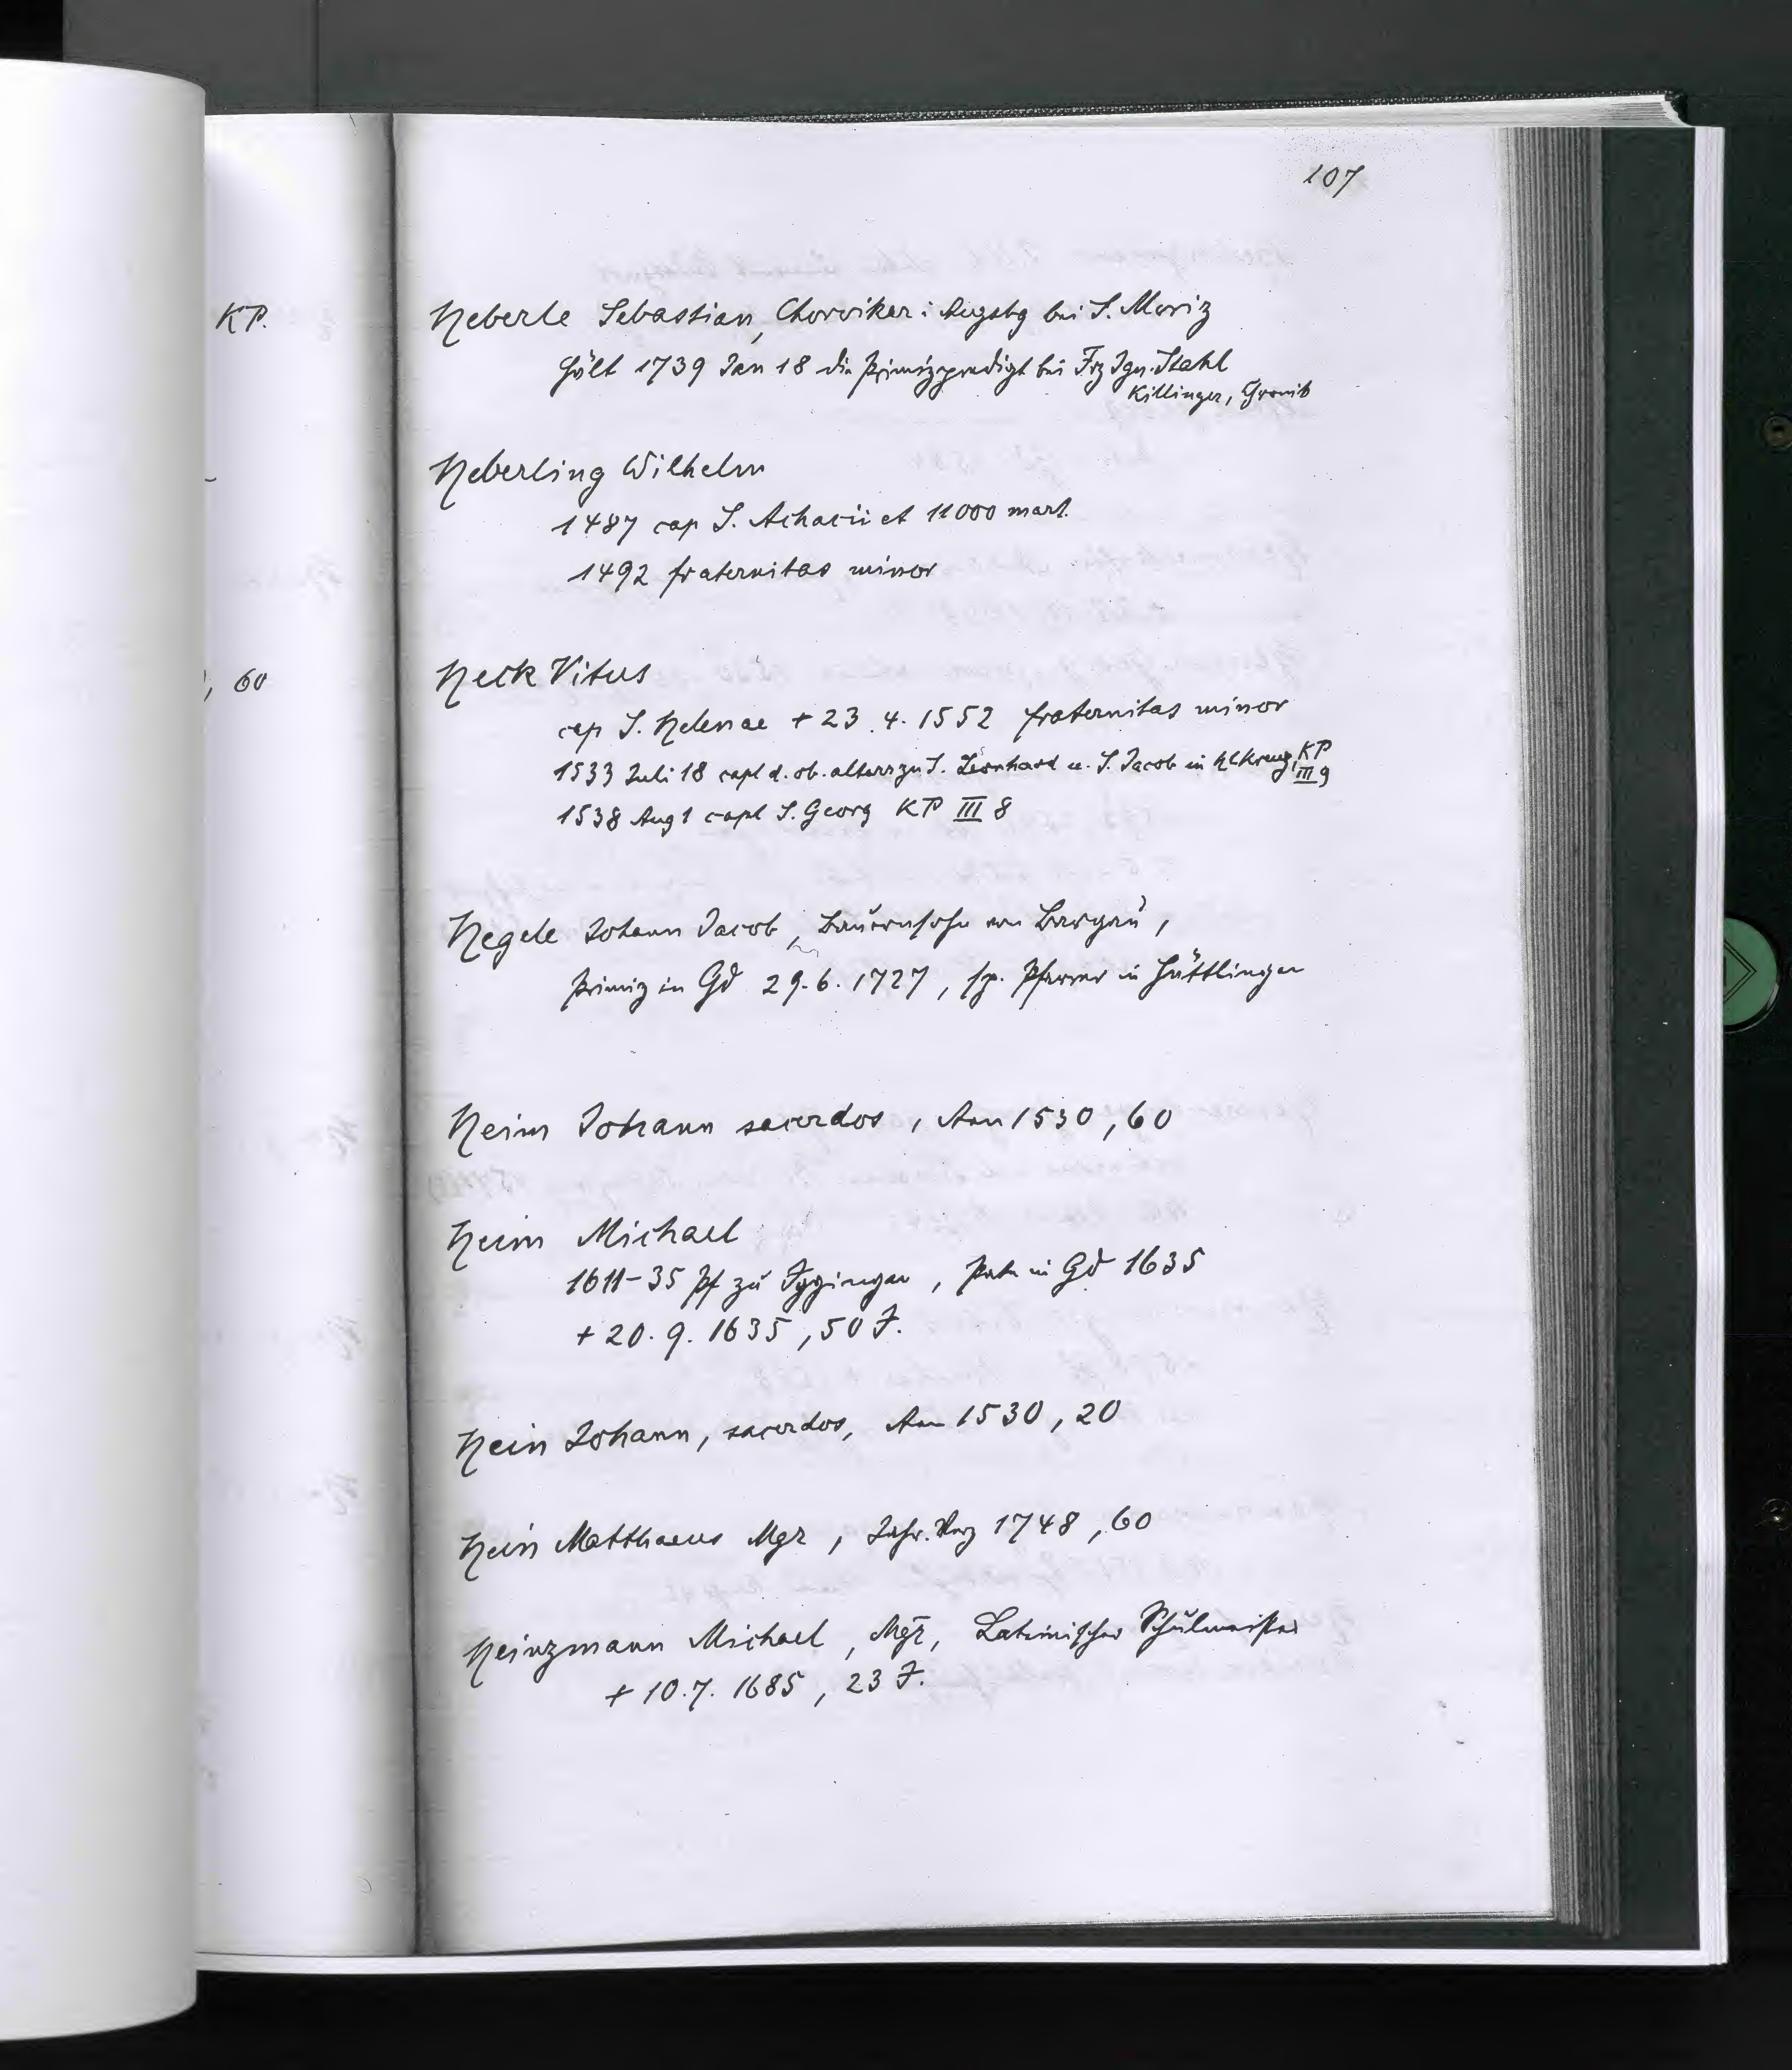 107
KP.
Heberle Sebastian, Chorvikar i Augsbg bei S. Moriz
hält 1739 Jan 18 die Primizpredigt bei Frz Ign. Stahl
Killinger, Chronik
Heberling Wilhelm
1487 cap S. Achacii et 11000 mart.
1492 fraternitas minor
, 60
Heck Vitus
cap S. Helenae + 23.4.1552 fraternitas minor
1533 Juli 18 capl d. ob. altars zu S. Leonhard u. S. Jacob in KP III 9
1538 Aug 1 capl S. Georg KP III 8
Hegele Johann Jacob, Bauernsohn von Bargau,
Primiz in Gd 29.6.1727, sp. Pfarrer in Hüttlingen
Heim Johann sacerdos, Ann 1530, 60
Heim Michael
1611-35 Pf zu Iggingen, Pate in Gd 1635
+ 20.9.1635, 50 J.
Hein Johann, sacerdos, Ann 1530, 20
Hein Matthaeus Mgr, Jahr. Verz 1748, 60
Heinzmann Michael, Mgr, Lateinischer Schulmeister
+ 10.7.1685, 23 J.